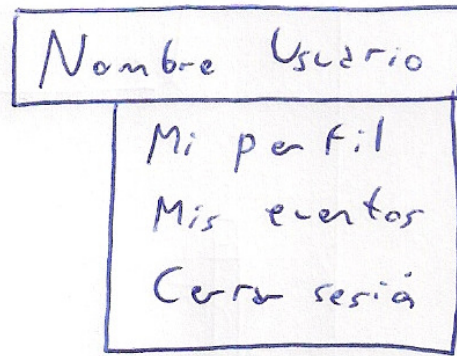 Nombre Usuario
Mi perfil
Mis eventos
Cerrar sesión